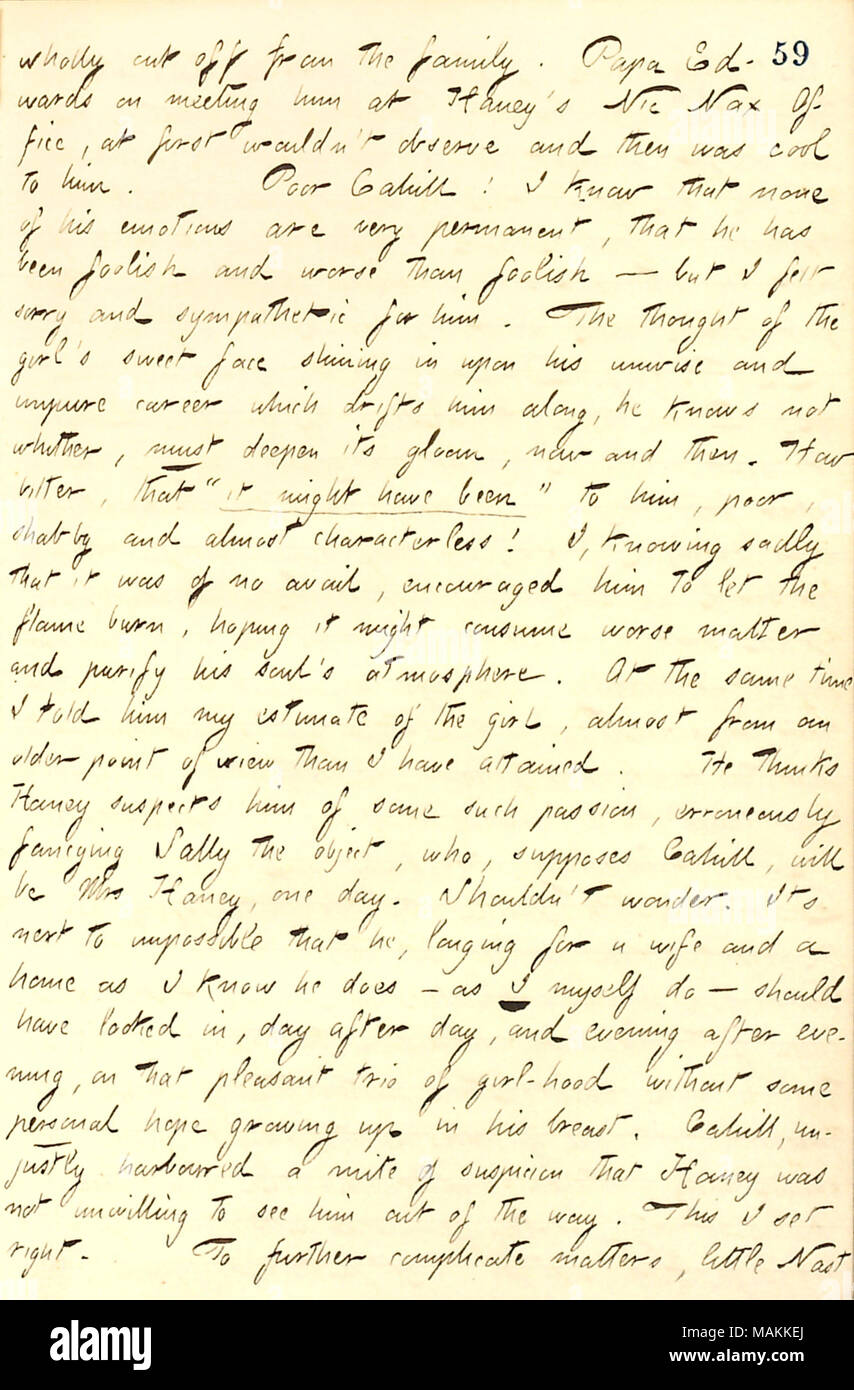 wholly cut off from the family. Papa Ed- 59
wards on meeting him at Haney's Nic Nax Of-
fice, at first wouldn't observe and then was cool
to him. Poor Cahill! I know that none
of his emotions are very permanent, that he has
been foolish and worse than foolish — but I felt
sorry and sympathetic for him. The thought of the
girl's sweet face shining in upon his unwise and
unpure career which drifts him along, he knows not
whither, must deepen its gloom, now and then. How
bitter, that "it might have been" to him, poor,
shabby and almost characterless! I, knowing sadly
that it was of no avail, encouraged him to let the
flame burn, hoping it might consume worse matter
and purify his soul's atmosphere. At the same time
I told him my estimate of the girl, almost from an
older point of view than I have attained. He thinks
Haney suspects him of some such passion, erroneously
fancying Sally the object, who, supposes Cahill, will
be Mrs Haney, one day. Shouldn't wonder. It's
next to impossible that he, longing for a wife and a
home as I know he does – as I myself do – should
have looked in, day after day, and evening after eve-
ning, on that pleasant trio of girl-hood without some
personal hope growing up in his breast. Cahill, un-
justly harboured a mite of suspicion that Haney was
not unwilling to see him out of the way. This I set
right. To further complicate matters, little Nast
alamy
Image ID: MAKKEJ
www.alamy.com